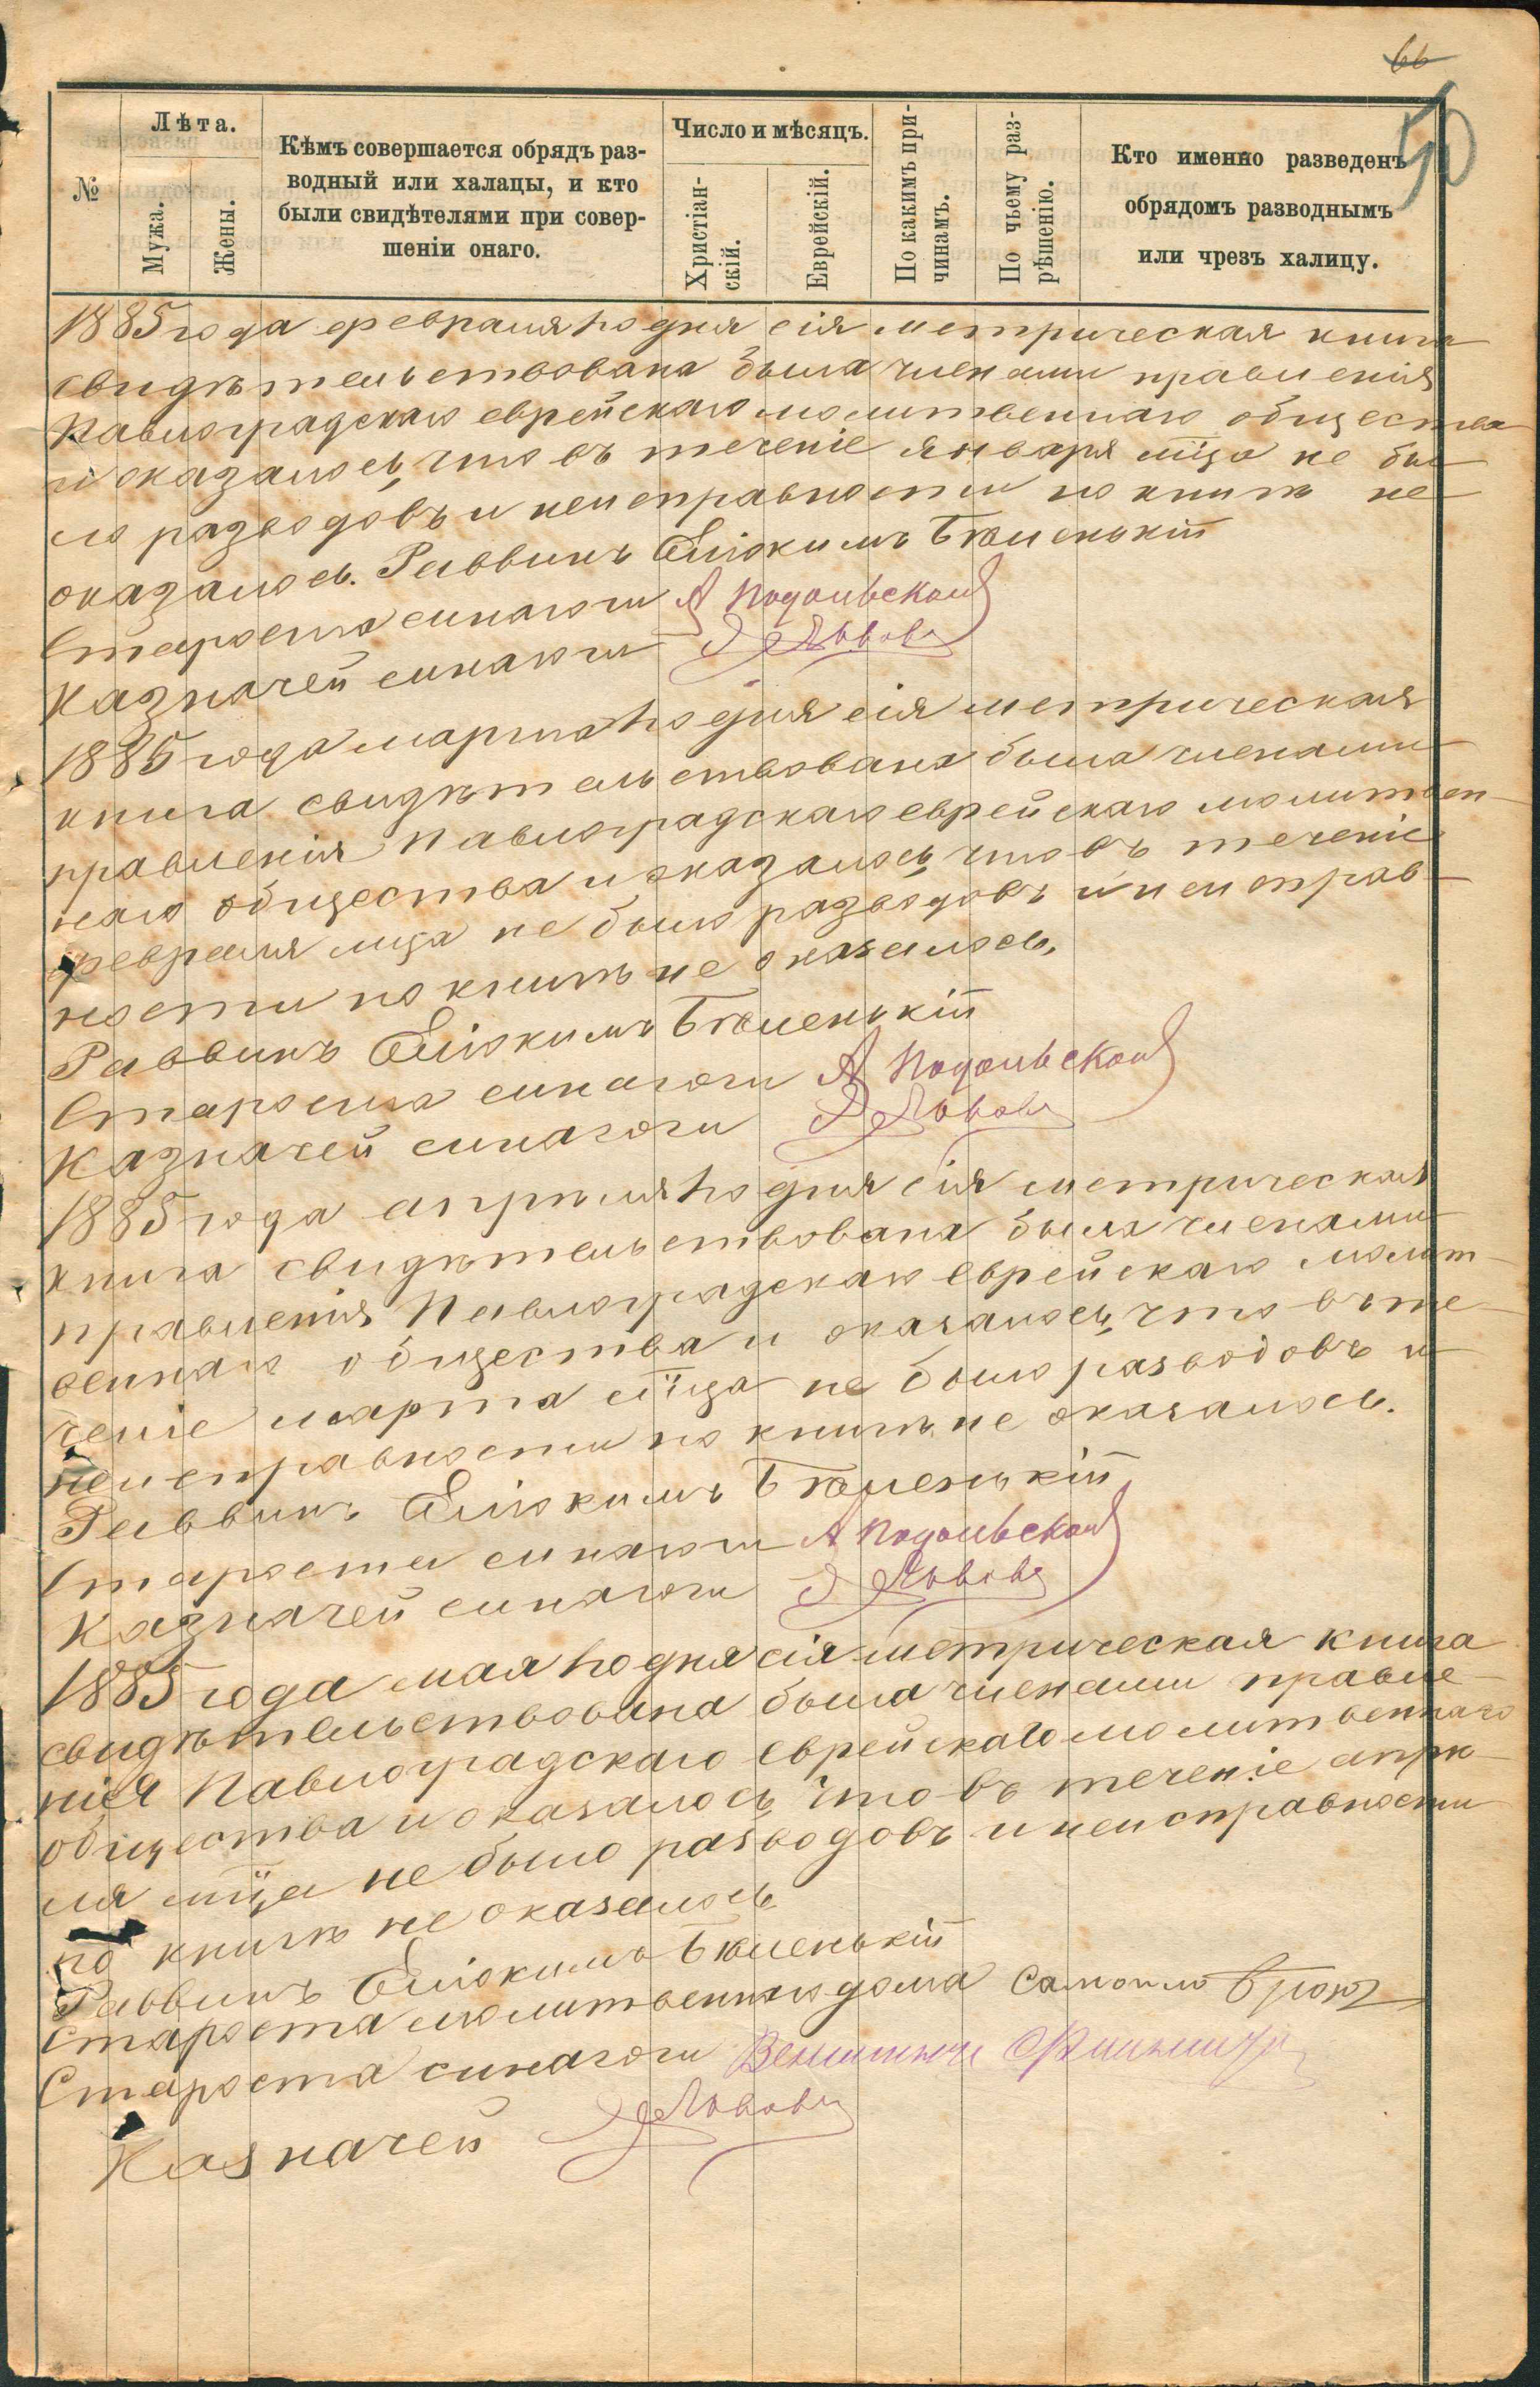 66
50
№
Лѣта.
Мужа.
Жены.
Кѣмъ совершается обрядъ раз-
водный или халацы, и кто
были свидѣтелями при совер-
шеніи онаго.
Число и мѣсяцъ.
Христіан-
скій.
Еврейскій.
По какимъ при-
чинамъ.
По чьему раз-
рѣшенію.
Кто именно разведенъ
обрядомъ разводнымъ
или чрезъ халицу.
1885 года февраля 1го дня сія метрическая книга
свидѣтельствована была членами правленія
Павлоградскаго еврейскаго молитвеннаго общества
и оказалось, что въ теченіе января мца не бы-
ло разводовъ и неисправности по книгѣ не
оказалось. Раввинъ Еліокимъ Бѣленькій
Староста синагоги А Подольской
Казначей синагоги Львовъ
1885 года марта 1го дня сія метрическая
книга свидѣтельствована была членами
правленія Павлоградскаго еврейскаго молитвен-
наго общества и оказалось, что въ теченіе
февраля мца не было разводовъ и неисправ-
ности по книгѣ не оказалось.
Раввинъ Еліокимъ Бѣленькій
Староста синагоги А Подольской
Казначей синагоги Львовъ
1885 года апрѣля 1го дня сія метрическая
книга свидѣтельствована была членами
правленія Павлоградскаго еврейскаго молит-
веннаго общества и оказалось, что въ те-
ченіе марта мца не было разводовъ и
неисправности по книгѣ не оказалось.
Раввинъ Еліокимъ Бѣленькій
Староста синагоги А Подольской
Казначей синагоги Львовъ
1885 года мая 1го дня сія метрическая книга
свидѣтельствована была членами правле-
нія Павлоградскаго еврейскаго молитвеннаго
общества и оказалось, что въ теченіе апрѣ-
ля мца не было разводовъ и неисправности
по книгѣ не оказалось
Раввинъ Еліокимъ Бѣленькій
Староста молитвеннаго дома
Староста синагоги
Казначей Львовъ